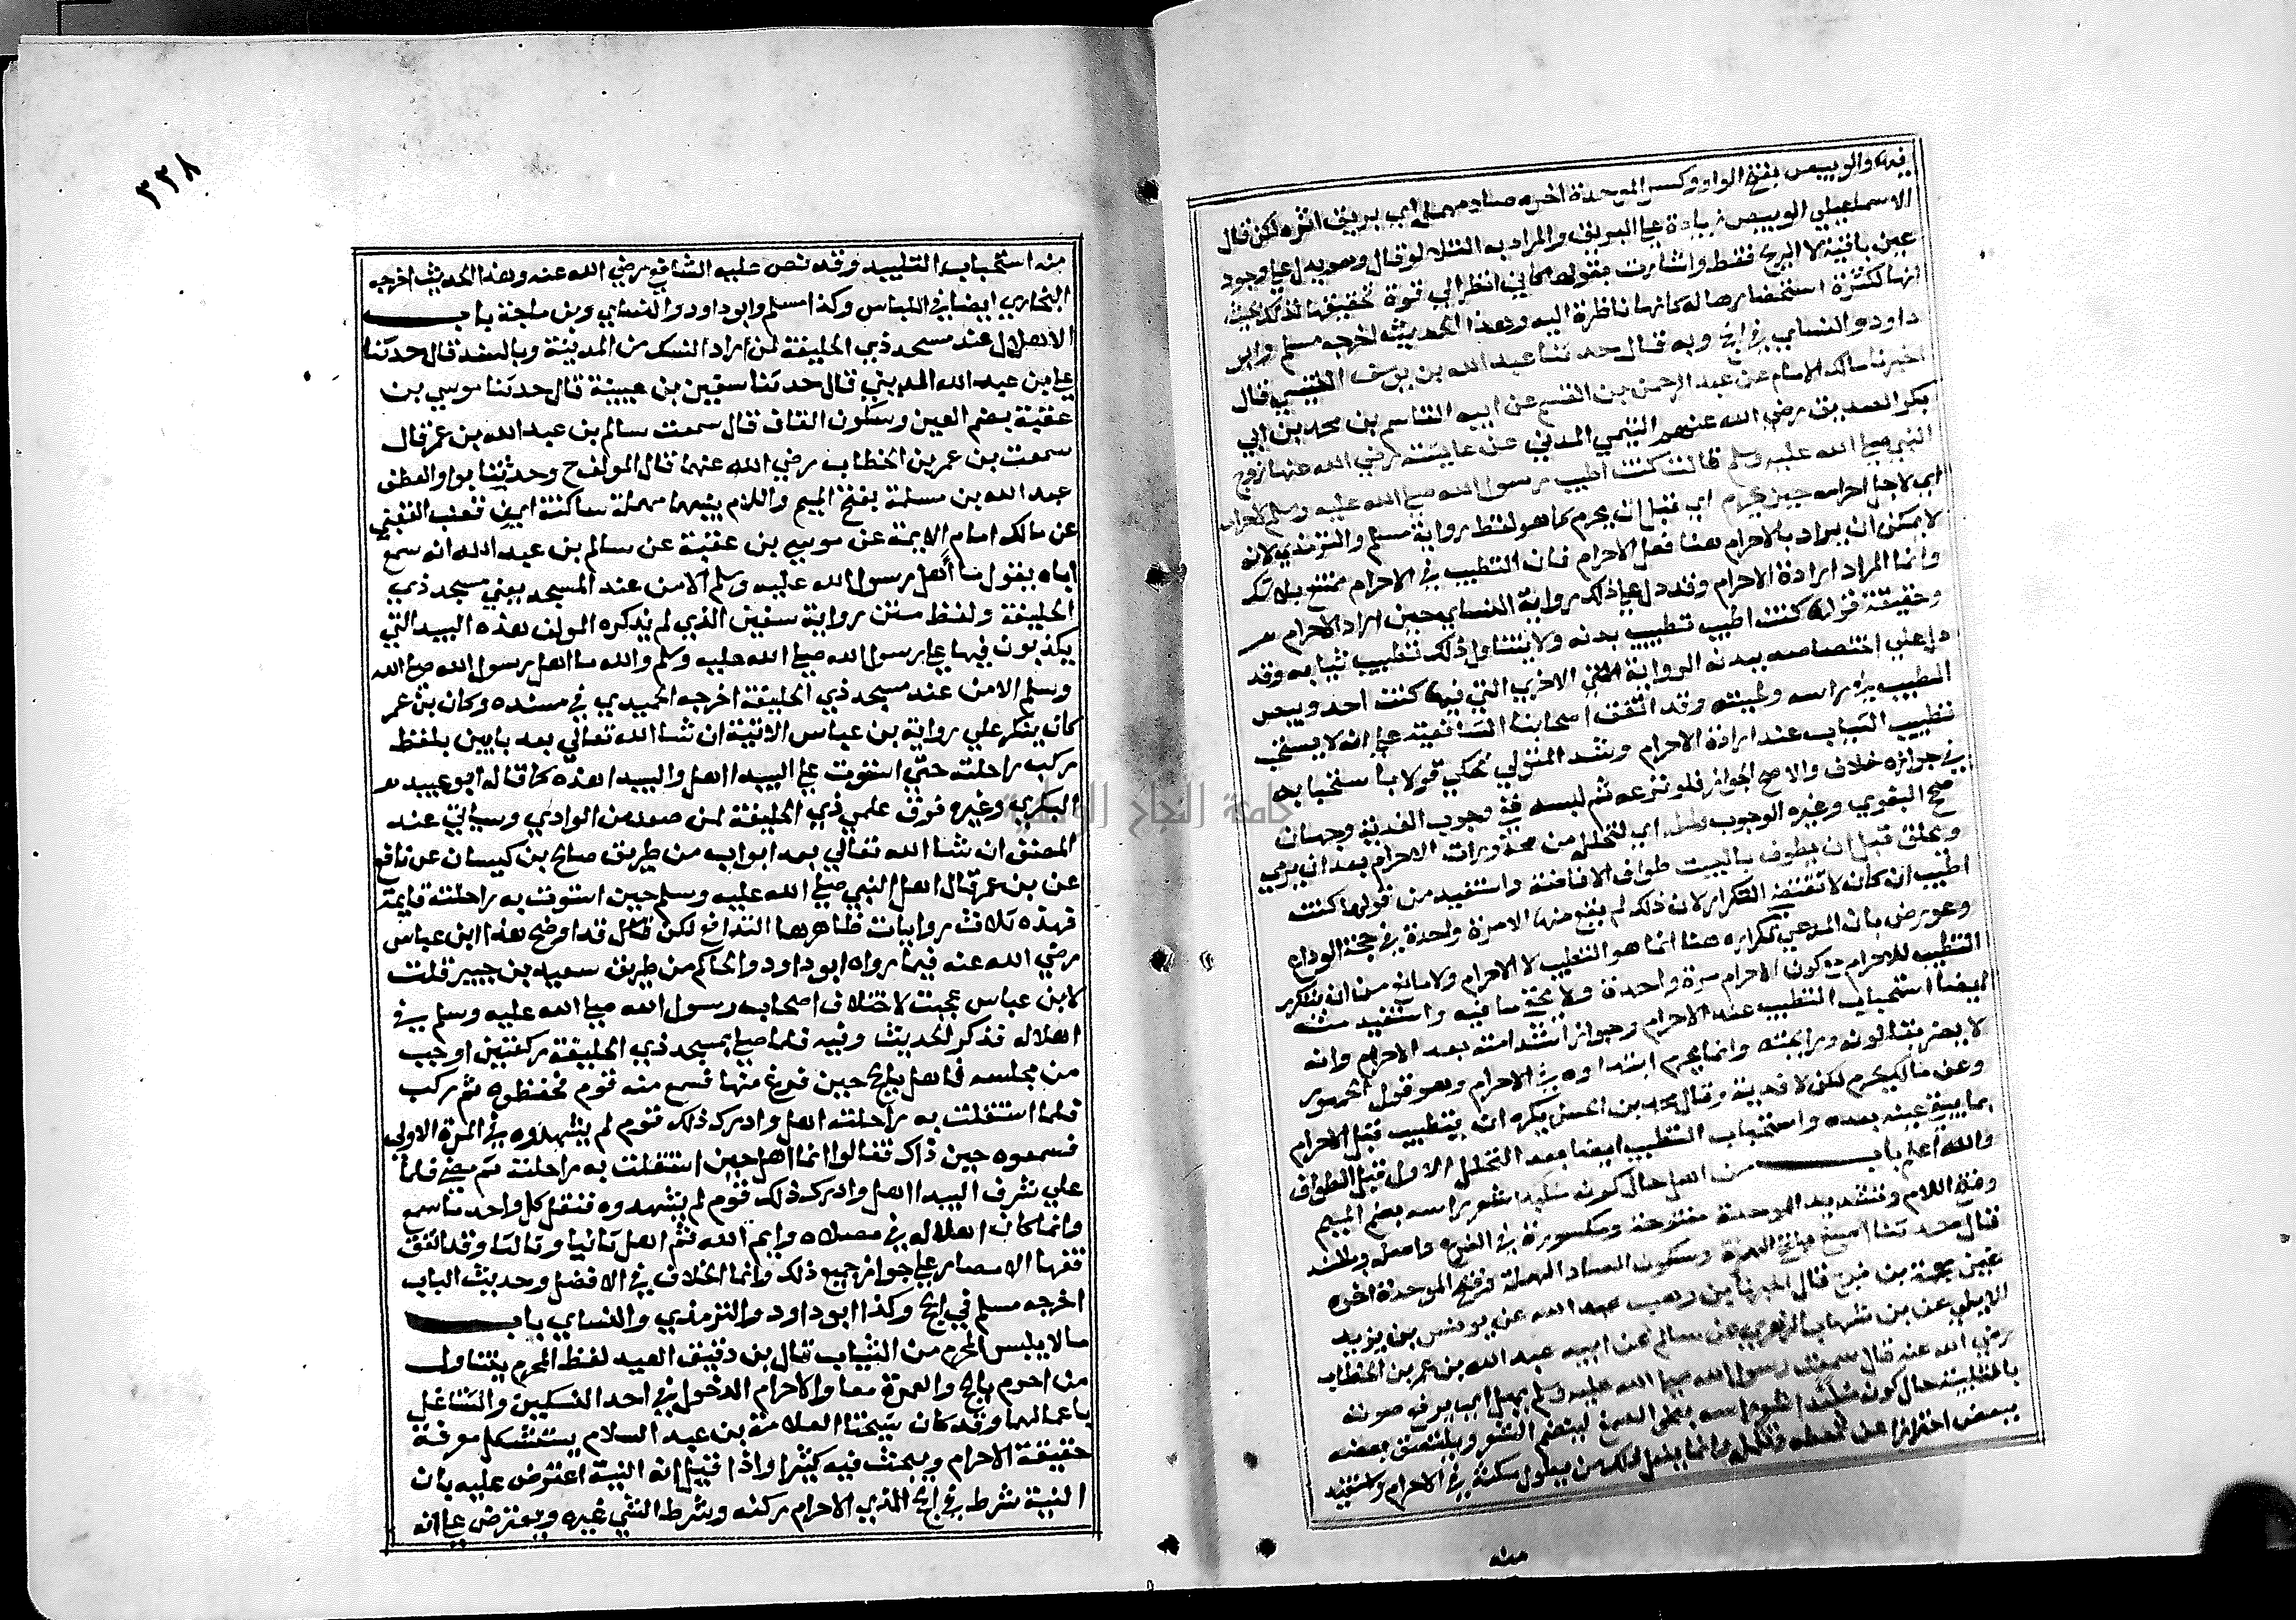 فيه والوبيص بفتح الواو وكسر الموحدة اخره صاد مهملة اي بريق اثره لكن قال
الاسماعيلي الوبيص زيادة علي البريق والمراد به التلالو قال وهو يدل علي وجود
عين باقية لا الريح فقط واشارت بقولها كاني انظر الي قوة تحقيقها لذلك بحيث
انها لكثرة استحضارها له كانها ناظرة اليه وهذا الحديث اخرجه مسلم وابو
داود والنساي في الحج وبه قال حدثنا عبد الله بن يوسف التنيسي قال
اخبرنا مالك الامام عن عبد الرحمن بن القسم عن ابيه القاسم بن محمد بن ابي
بكر الصديق رضي الله عنهم التيمي المدني عن عايشة رضي الله عنها زوج
النبي صلي الله عليه وسلم قالت كنت اطيب رسول الله صلي الله عليه وسلم لاحرامه
اي لاجل احرامه حين يحرم اي قبل ان يحرم كما هو لفظ رواية مسلم والترمذي لانه
لا يمكن ان يراد بالاحرام هنا فعل الاحرام فان التطيب في الاحرام ممتنع بلا شك
وانما المراد ارادة الاحرام وقد دل علي ذلك رواية النساي حين اراد الاحرام
وحقيقة قولها كنت اطيب تطييب بدنه ولا يتناول ذلك تطييب ثيابه وقد
دل علي اختصاصه ببدنه الرواية الاخري التي فيها كنت اجد وبيص
الطيب في راسه ولحيته وقد اتفق اصحابنا الشافعية علي انه لا يستحب
تطييب الثياب عند ارادة الاحرام وشذ المتولي فحكي قولا باستحبابه
في جوازه خلاف والاصح الجواز فلو نزعه ثم لبسه ففي وجوب الفدية وجهان
صحح البغوي وغيره الوجوب ولحله اي لتحلله من محذورات الاحرام بعد ان يرمي
ويحلق قبل ان يطوف بالبيت طواف الافاضة واستفيد من قولها كنت
اطيب ان كان لا تقتضي التكرار لان ذلك لم يقع منها الا مرة واحدة في حجة الوداع
وعورض بان المدعي تكراره هنا انما هو التطيب لا الاحرام ولا مانع من ان يتكرر
التطيب للاحرام مع كون الاحرام مرة واحدة ولا يخفي ما فيه واستفيد منه
ايضا استحباب التطيب عند الاحرام وجواز استدامته بعد الاحرام وانه
لا يضر بقا لونه ورايحته وانما يحرم ابتداوه في الاحرام وهو قول الجمهور
وعن مالك يحرم لكن لا فدية وقال محمد بن الحسن يكره ان يتطيب قبل الاحرام
بما يبقي عينه بعده واستحباب التطيب ايضا بعد التحلل الاول قبل الطواف
والله اعلم باب من اهل حال كونه ملبدا شعر راسه بضم الميم
وفتح اللام وتشديد الموحدة مفتوحة ومكسورة في الفرع واصله وبالسند
قال حدثنا اصبغ بفتح الهمزة وسكون الصاد المهملة وفتح الموحدة اخره
غين معجمة بن فرج قال اخبرنا بن وهب عبد الله عن يونس بن يزيد
الايلي عن بن شهاب الزهري عن سالم عن ابيه عبد الله بن عمر بن الخطاب
رضي الله عنه قال سمعت رسول الله صلي الله عليه وسلم يهل اي يرفع صوته
بالتلبية حال كونه ملبدا شعر راسه بنحو الصمغ لينضم الشعر ويلتصق بعضه
ببعض احترازا عن وانما يفعل ذلك من يطول مكثه في الاحرام واستفيد
منه
٣٣٨
منه استحباب التلبيد وقد نص عليه الشافعي رضي الله عنه وهذا الحديث اخرجه
البخاري ايضا في اللباس وكذا مسلم وابو داود والنساي وبن ماجة باب
الاهلال عند مسجد ذي الحليفة لمن اراد النسك من المدينة وبالسند قال حدثنا
علي بن عبد الله المديني قال حدثنا سفين بن عيينة قال حدثنا موسي بن
عقبة بضم العين وسكون القاف قال سمعت سالم بن عبد الله بن عمر قال
سمعت بن عمر بن الخطاب رضي الله عنهما قال المولف ح وحدثنا بواو العطف
عبد الله بن مسلمة بفتح الميم واللام بينهما مهملة ساكنة ابن قعنب القعنبي
عن مالك امام الايمة عن موسي بن عقبة عن سالم بن عبد الله انه سمع
اباه يقول ما اهل رسول الله عليه وسلم الا من عند المسجد يعني مسجد ذي
الحليفة ولفظ متن رواية سفين الذي لم يذكره المولف هذه البيدا التي
يكذبون فيها علي رسول الله صلي الله عليه وسلم والله ما اهل رسول الله صلي الله
وسلم الا من عند مسجد ذي الحليفة اخرجه الحميدي في مسنده وكان بن عمر
كان ينكر علي رواية بن عباس الاتية ان شا الله تعالي بعد بابين بلفظ
ركب راحلته حتي استوت علي البيدا اهل والبيدا هذه كما قاله ابو عبيد
البكري وغيره فوق علمي ذي الحليفة لمن صعد من الوادي وسياتي عند
المصنف ان شا الله تعالي بعد ابواب من طريق صالح بن كيسان عن نافع
عن بن عمر قال اهل النبي صلي الله عليه وسلم حين استوت به راحلته قايمة
فهذه ثلاث روايات ظاهرها التدافع لكن قد اوضح هذا ابن عباس
رضي الله عنه فيما رواه ابو داود والحاكم من طريق سعيد بن جبير قلت
لابن عباس عجبت لاختلاف اصحاب رسول الله صلي الله عليه وسلم في
اهلاله فذكر الحديث وفيه فلما صلي بمسجد ذي الحليفة ركعتين اوجب
من مجلسه فاهل بالحج حين فرغ منها فسمع منه قوم فحفظوه ثم ركب
فلما استقلت به راحلته اهل وادرك ذلك قوم لم يشهدوه في المرة الاولي
فسمعوه حين ذاك فقالوا انما اهل حين استقلت به راحلته ثم مضي فلما
علي شرف البيدا اهل وادرك ذلك قوم لم يشهدوه فنقل كل واحد ما سمع
وانما كان اهلاله في مصلاه وايم الله ثم اهل ثانيا وثالثا وقد اتفق
فقها الامصار علي جواز جميع ذلك وانما الخلاف في الافضل وحديث الباب
اخرجه مسلم في الحج وكذا ابو داود والترمذي والنساي باب
ما لا يلبس المحرم من الثياب قال بن دقيق العيد لفظ المحرم يتناول
من احرم بالحج والعمرة معا والاحرام الدخول في احد النسكين والتشاغل
باعمالهما وقد كان شيخنا العلامة بن عبد السلام يستشكل معرفة
حقيقة الاحرام ويبحث فيه كثيرا واذا قيل انه النية اعترض عليه بان
النية شرط في الحج الذي الاحرام ركنه وشرط الشي غيره ويعترض علي انه